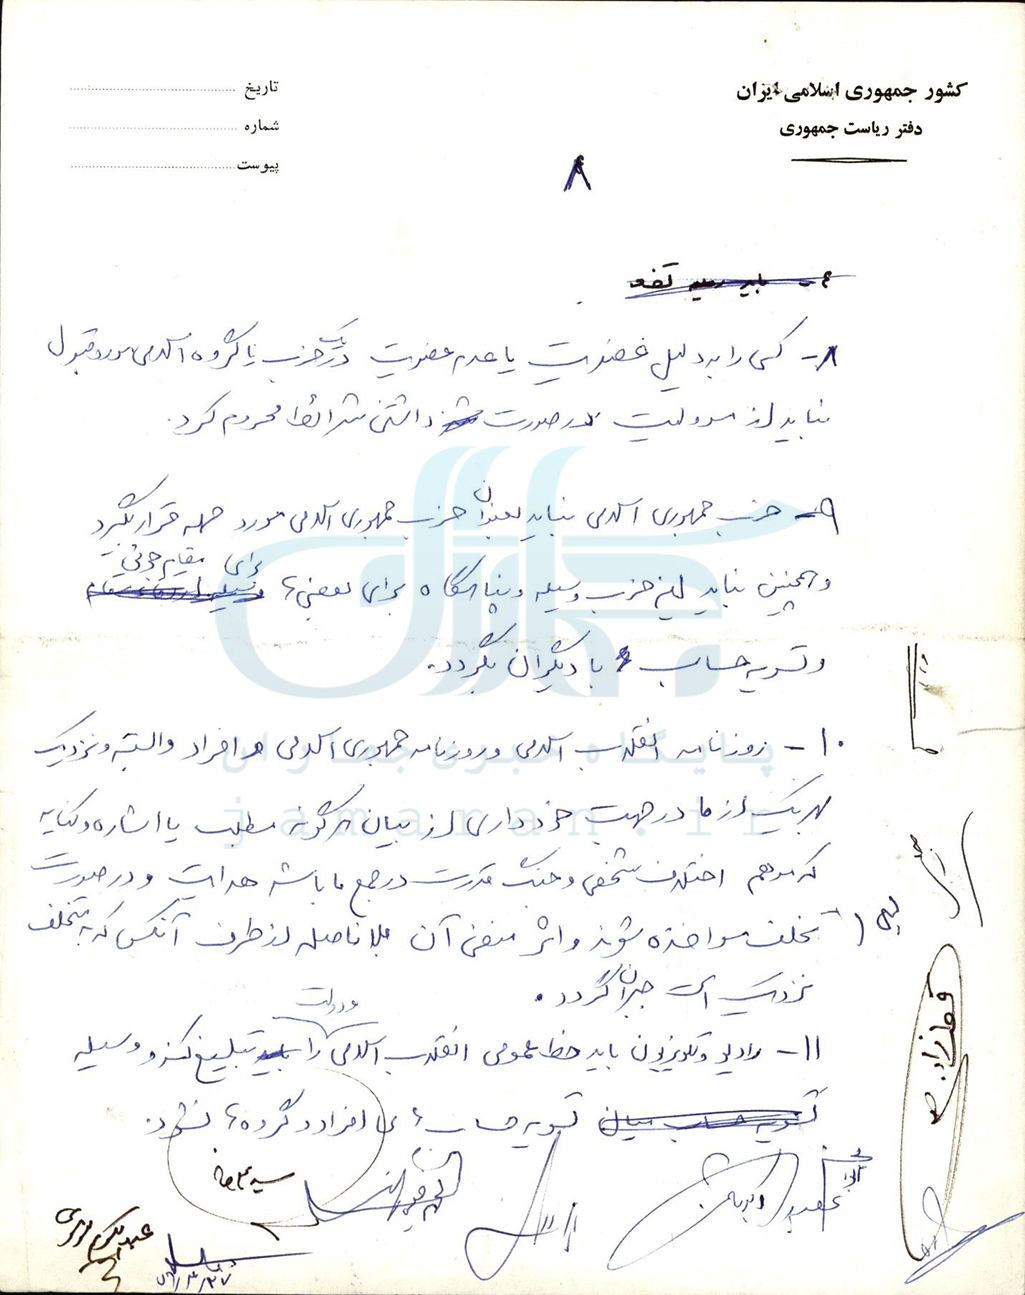 کشور جمهوری اسلامی ایران
دفتر ریاست جمهوری
تاریخ
شماره
پیوست
۸
۸- کسی را به دلیل عضویت یا عدم عضویت در یک حزب یا گروه اسلامی مورد قبول
نباید از مسولیت در صورت داشتن شرائط محروم کرد.
۹- حزب جمهوری اسلامی نباید بعنوان حزب جمهوری اسلامی مورد حمله قرار بگیرد
و همچنین نباید این حزب وسیله و پناهگاه برای بعضی ها برای مقام جوئی
و تسویه حساب با دیگران بگردد.
۱۰- روزنامه انقلاب اسلامی و روزنامه جمهوری اسلامی و افراد وابسته و نزدیک
بهر یک از ما در جهت خودداری از بیان هرگونه مطلب یا اشاره و کنایه
که موهم اختلاف شخصی و جنگ قدرت در جمع ما باشد هدایت و در صورت
تخلف مواخذه شوند و اثر منفی آن بلافاصله از طرف آنکس که متخلف به
نزدیک است جبران گردد.
۱۱- رادیو و تلویزیون باید خط عمومی انقلاب اسلامی و دولت را تبلیغ کند و وسیله
تسویه حساب های افراد و گروه ها نشود.
قطب زاده
پایگاه خبری جماران
jamaran.ir